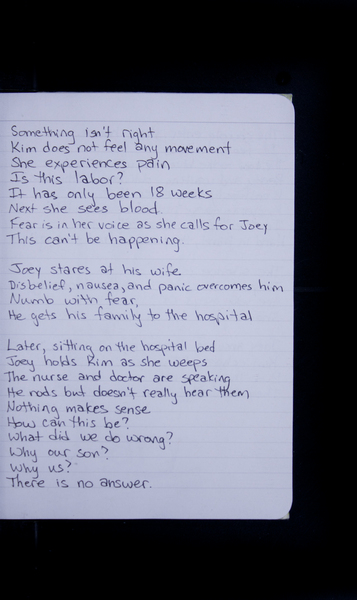 Something isn't right
Kim does not feel any movement
She experiences pain
Is this labor?
It has only been 18 weeks
Next she sees blood.
Fear is in her voice as she calls for Joey
This can't be happening.
Joey stares at his wife
Disbelief, nausea, and panic overcomes him
Numb with fear,
He gets his family to the hospital
Later, sitting on the hospital bed
Joey holds Kim as she weeps
The nurse and doctor are speaking
He nods but doesn't really hear them
Nothing makes sense
How can this be?
What did we do wrong?
Why our son?
Why us?
There is no answer.